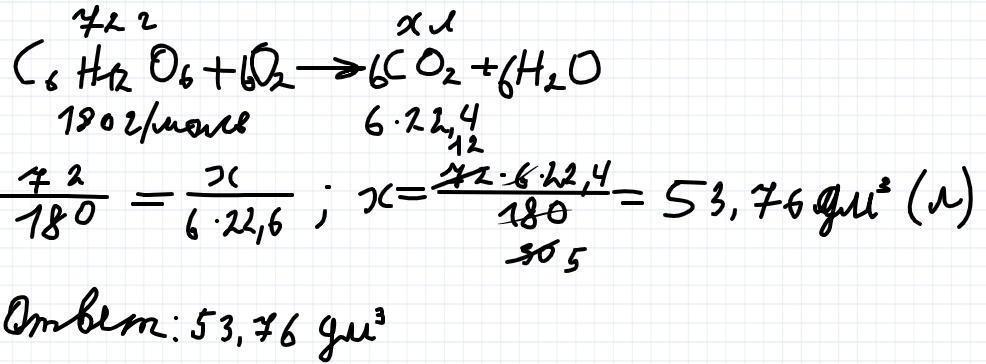 72 г x л
C₆H₁₂O₆ + 6O₂ → 6CO₂ + 6H₂O
180 г/моль 6·22,4
72/180 = x/(6·22,6) ; x = (72·6·22,4)/180 = 53,76 дм³ (л)
12
30 5
Ответ: 53,76 дм³